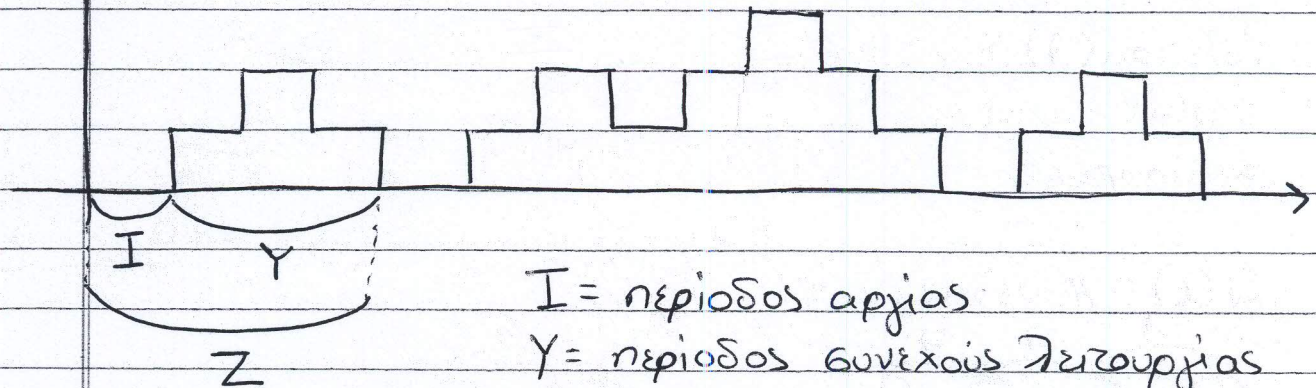 I Y
Z
I = περίοδος αργίας
Y = περίοδος συνεχούς λειτουργίας